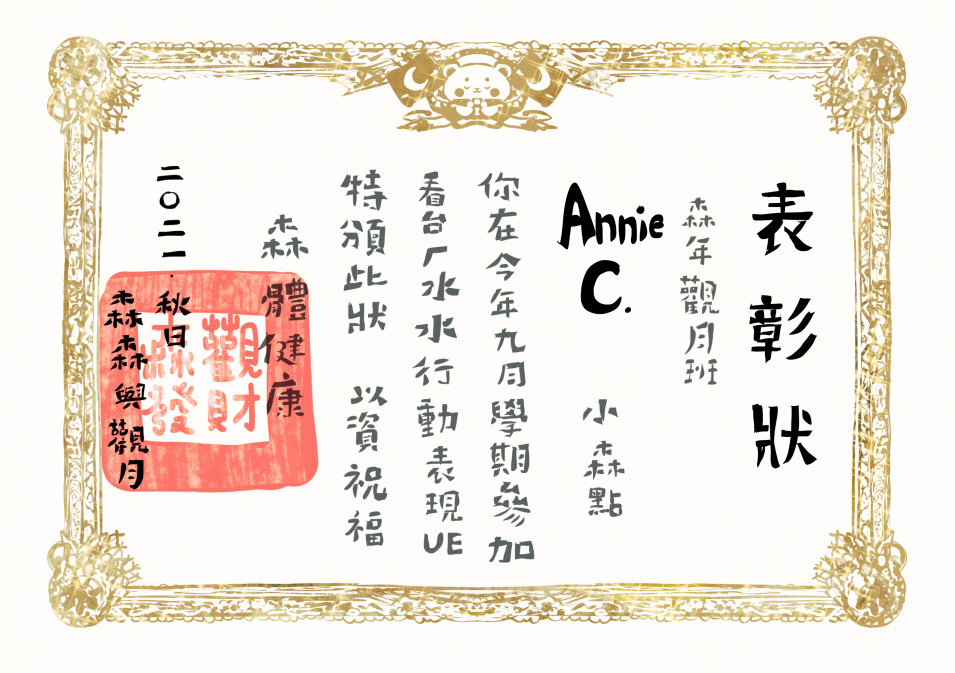 表彰狀
森年觀月班
Annie C.
小森點
你在今年九月學期參加
看台ㄏ水水行動表現UE
特頒此狀 以資祝福
森體健康
二〇二一.秋日
森森與觀月
觀財
森發